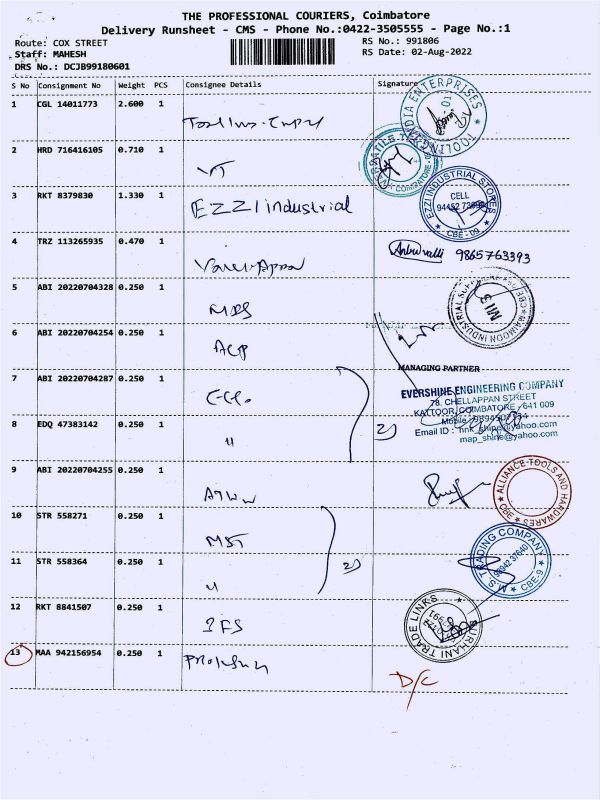 THE PROFESSIONAL COURIERS, Coimbatore
Delivery Runsheet - CMS - Phone No.:0422-3505555 - Page No.:1
Route: COX STREET
RS No.: 991806
Staff: MAHESH
RS Date: 02-Aug-2022
DRS No.: DCJB99180601
S No Consignment No Weight PCS Consignee Details Signature
1 CGL 14011773 2.600 1
2 HRD 716416105 0.710 1 VT
3 RKT 8379830 1.330 1 EZZI industrial
EZZI INDUSTRIAL STORES
CELL
CBE - 09
4 TRZ 113265935 0.470 1 9865763393
5 ABI 20220704328 0.250 1
6 ABI 20220704254 0.250 1
MANAGING PARTNER
7 ABI 20220704287 0.250 1
EVERSHINE ENGINEERING COMPANY
78, CHELLAPPAN STREET
KATTOOR, COIMBATORE - 641 009
8 EDQ 47383142 0.250 1 " 2)
Email ID : hnk_shine@yahoo.com
map_shine@yahoo.com
9 ABI 20220704255 0.250 1
ALLIANCE TOOLS AND HARDWARES
CBE
10 STR 558271 0.250 1 MST
11 STR 558364 0.250 1 " 2)
M S TRADING COMPANY
98942 37640
CBE-9
12 RKT 8841507 0.250 1 IFS
BURHANI TRADE LINKS
13 MAA 942156954 0.250 1
D/C